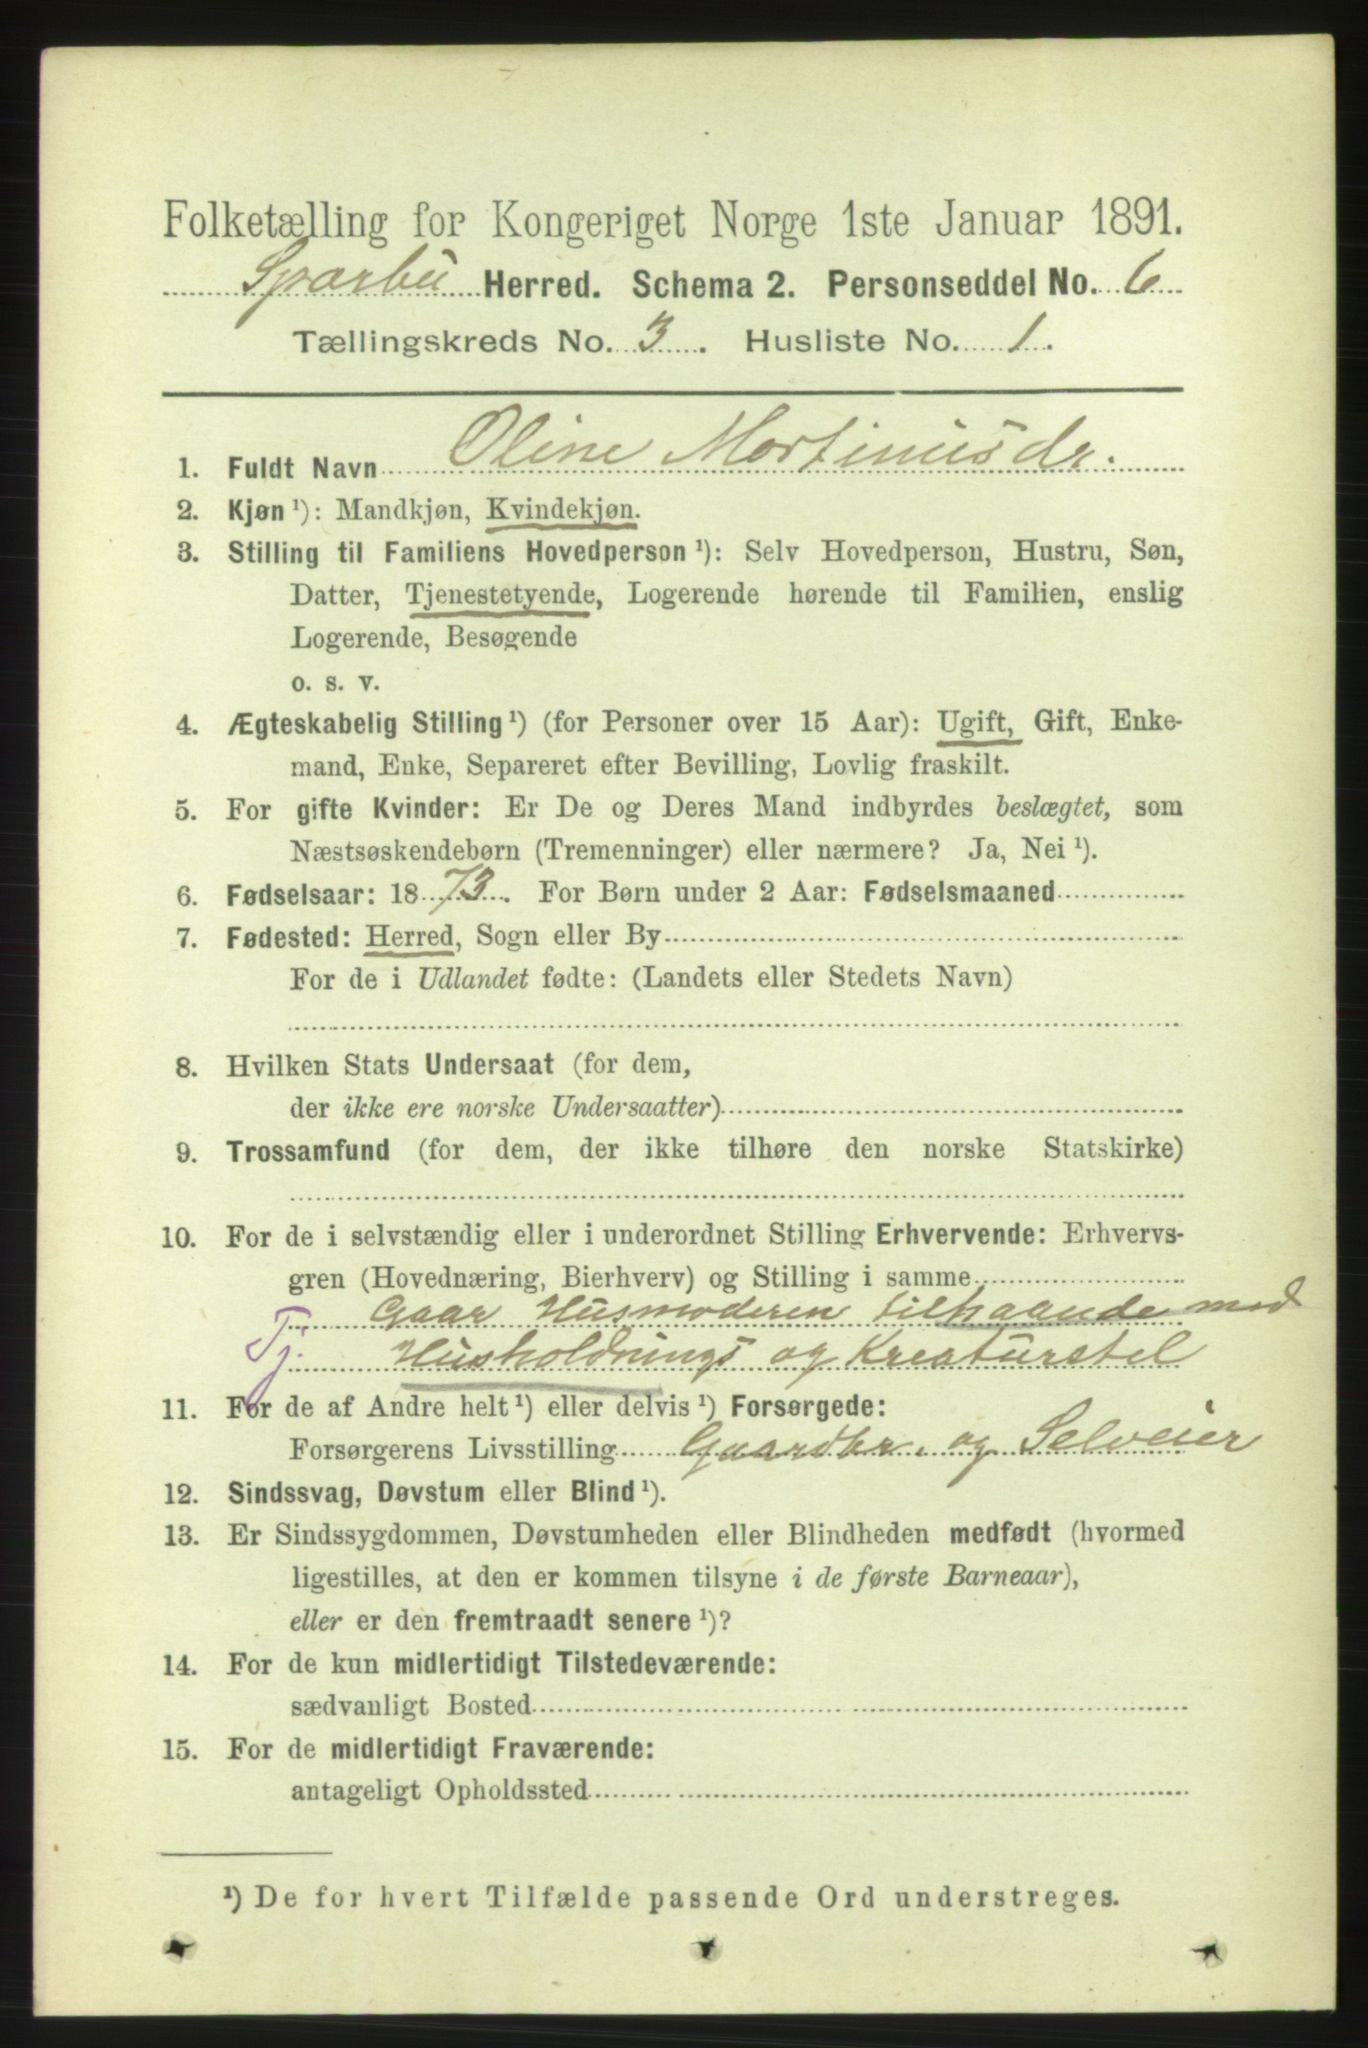 Folketælling for Kongeriget Norge 1ste Januar 1891.
Sparbu Herred. Schema 2. Personseddel No. 6
Tællingskreds No. 3. Husliste No. 1.
1. Fuldt Navn Oline Mortinusdr.
2. Kjøn ¹): Mandkjøn, Kvindekjøn.
3. Stilling til Familiens Hovedperson ¹): Selv Hovedperson, Hustru, Søn,
Datter, Tjenestetyende, Logerende hørende til Familien, enslig
Logerende, Besøgende
o. s. v.
4. Ægteskabelig Stilling ¹) (for Personer over 15 Aar): Ugift, Gift, Enke-
mand, Enke, Separeret efter Bevilling, Lovlig fraskilt.
5. For gifte Kvinder: Er De og Deres Mand indbyrdes beslægtet, som
Næstsøskendebørn (Tremenninger) eller nærmere? Ja, Nei ¹).
6. Fødselsaar: 1873. For Børn under 2 Aar: Fødselsmaaned
7. Fødested: Herred, Sogn eller By
For de i Udlandet fødte: (Landets eller Stedets Navn)
8. Hvilken Stats Undersaat (for dem,
der ikke ere norske Undersaatter)
9. Trossamfund (for dem, der ikke tilhøre den norske Statskirke)
10. For de i selvstændig eller i underordnet Stilling Erhvervende: Erhvervs-
gren (Hovednæring, Bierhverv) og Stilling i samme
Gaar Husmoderen tilhaande med
Tj. Husholdnings og Kreaturstel
11. For de af Andre helt ¹) eller delvis ¹) Forsørgede:
Forsørgerens Livsstilling Gaardbr. og Selveier
12. Sindssvag, Døvstum eller Blind ¹).
13. Er Sindssygdommen, Døvstumheden eller Blindheden medfødt (hvormed
ligestilles, at den er kommen tilsyne i de første Barneaar),
eller er den fremtraadt senere ¹)?
14. For de kun midlertidigt Tilstedeværende:
sædvanligt Bosted
15. For de midlertidigt Fraværende:
antageligt Opholdssted
¹) De for hvert Tilfælde passende Ord understreges.